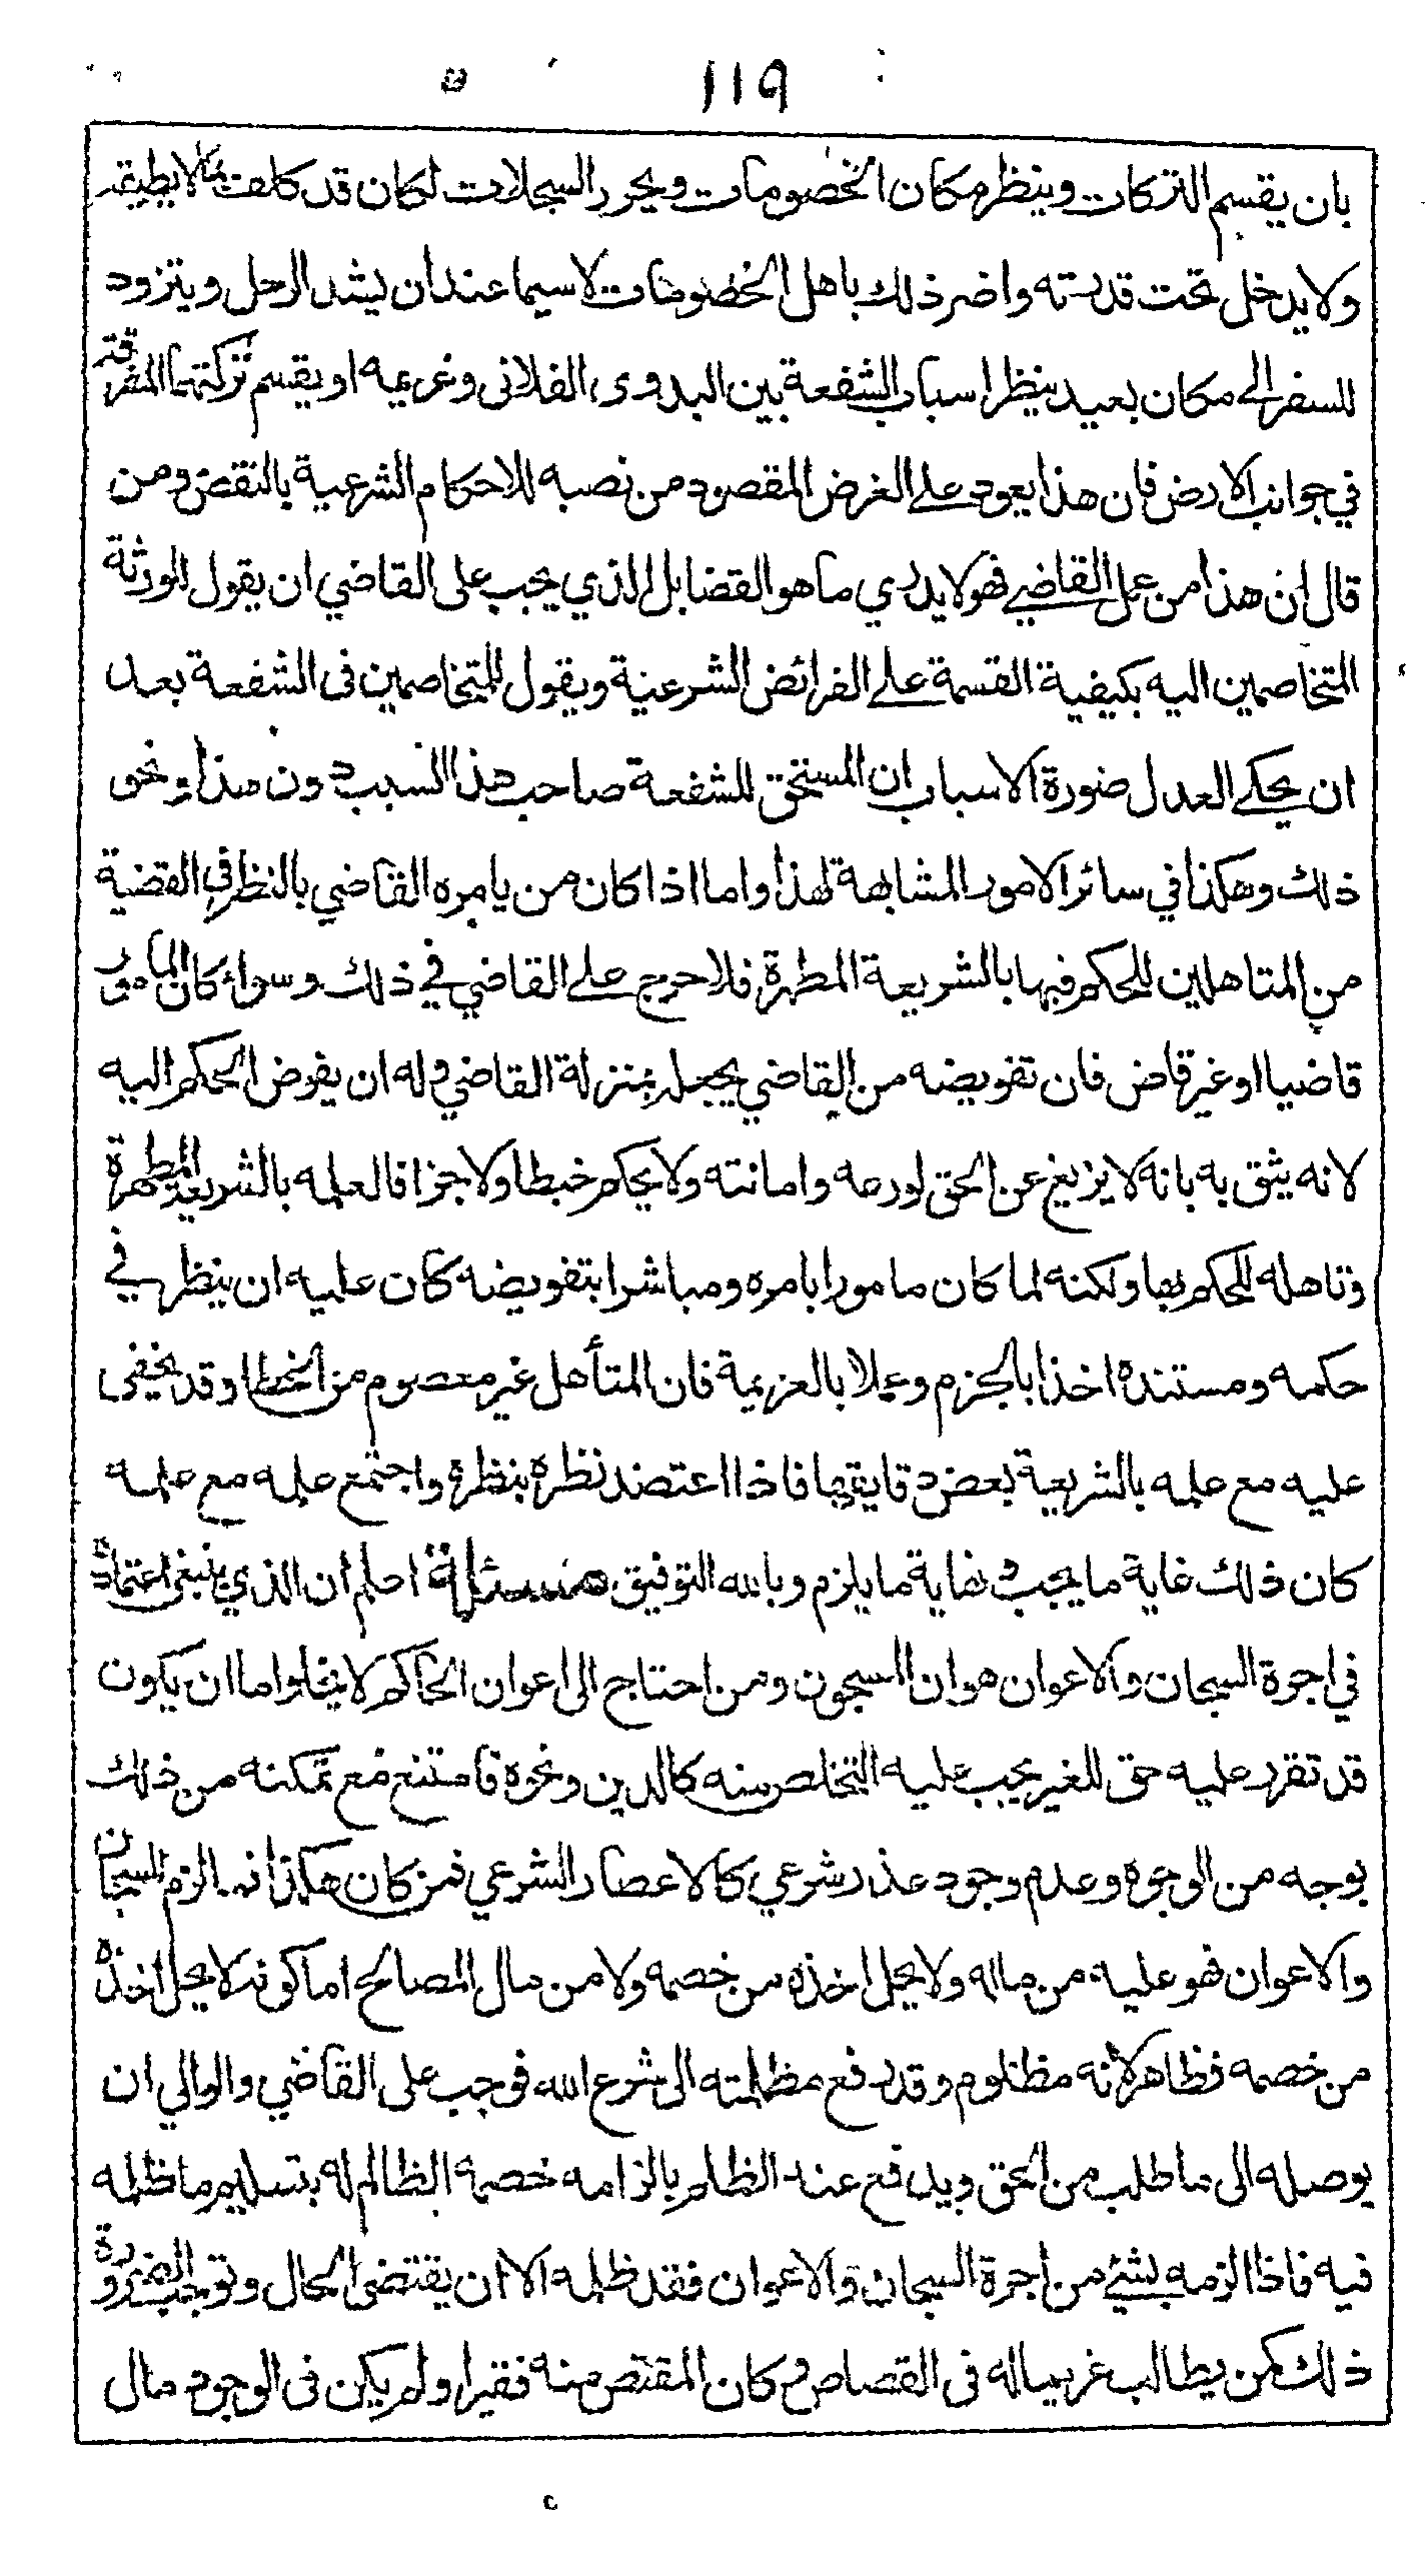 ١١٩
بان يقسم التركات وينظر مكان الخصومات ويحرر السجلات لكان قد كلف مما لا يطيقه
ولا يدخل تحت قدرته واضر ذلك باهل الخصومات لا سيما عند ان يشد الرحل ويتزود
للسفر الى مكان بعيد ينظر اسباب الشفعة بين البدوى الفلانى وغريمه او يقسم تركتهما المفرقة
في جوانب الارض فان هذا يعود على الغرض المقصود من نصبه للاحكام الشرعية بالنقض ومن
قال ان هذا من عمل القاضي فهو لا يدري ما هو القضا بل الذي يجب على القاضي ان يقول للورثة
المتخاصمين اليه بكيفية القسمة على الفرائض الشرعية ويقول للمتخاصمين فى الشفعة بعد
ان يحكى العدل صورة الاسباب ان المستحق للشفعة صاحب هذا السبب دون هذا ونحو
ذلك وهكذا في سائر الامور المشابهة لهذا واما اذا كان من يامره القاضي بالنظر في القضية
من المتاهلين للحكم فيها بالشريعة المطهرة فلا حرج على القاضي في ذلك وسواء كان المامور
قاضيا او غير قاض فان تفويضه من القاضي يجعله بمنزلة القاضي وله ان يفوض الحكم اليه
لانه يثق به بانه لا يزيغ عن الحق لورعه وامانته ولا يحكم خبطا ولا جزافا لعلمه بالشريعة المطهرة
وتاهله للحكم بها ولكنه لما كان مامورا بامره ومباشرا بتفويضه كان عليه ان ينظر في
حكمه ومستنده اخذا بالحزم وعملا بالعزيمة فان المتأهل غير معصوم من الخطا وقد يخفى
عليه مع علمه بالشريعة بعض دقايقها فاذا اعتضد نظره بنظره واجتمع علمه مع علمه
كان ذلك غاية ما يجب ونهاية ما يلزم وبالله التوفيق مسئلة اعلم ان الذي ينبغي اعتماده
في اجرة السجان والاعوان هو ان المسجون ومن احتاج الى اعوان الحاكم لا يخلو اما ان يكون
قد تقرر عليه حق للغير يجب عليه التخلص منه كالدين ونحوه فامتنع مع تمكنه من ذلك
بوجه من الوجوه وعدم وجود عذر شرعي كالاعصار الشرعي فمن كان هكذا لزم للسجان
والاعوان فهو عليه من ماله ولا يحل اخذه من خصمه ولا من مال المصالح اما كونه لا يحل اخذه
من خصمه فظاهر لانه مظلوم وقد رفع مظلمته الى شرع الله فوجب على القاضي والوالي ان
يوصله الى ما طلب من الحق ويدفع عنه الظلم بالزامه خصمه الظالم له بتسليم ما ظلمه
فيه فاذا الزمه بشئ من اجرة السجان والاعوان فقد ظلمه الا ان يقتضى الحال وتوجب الضرورة
ذلك كمن يطالب غريما له فى القصاص وكان المقتص منه فقيرا ولم يكن فى الوجود مال